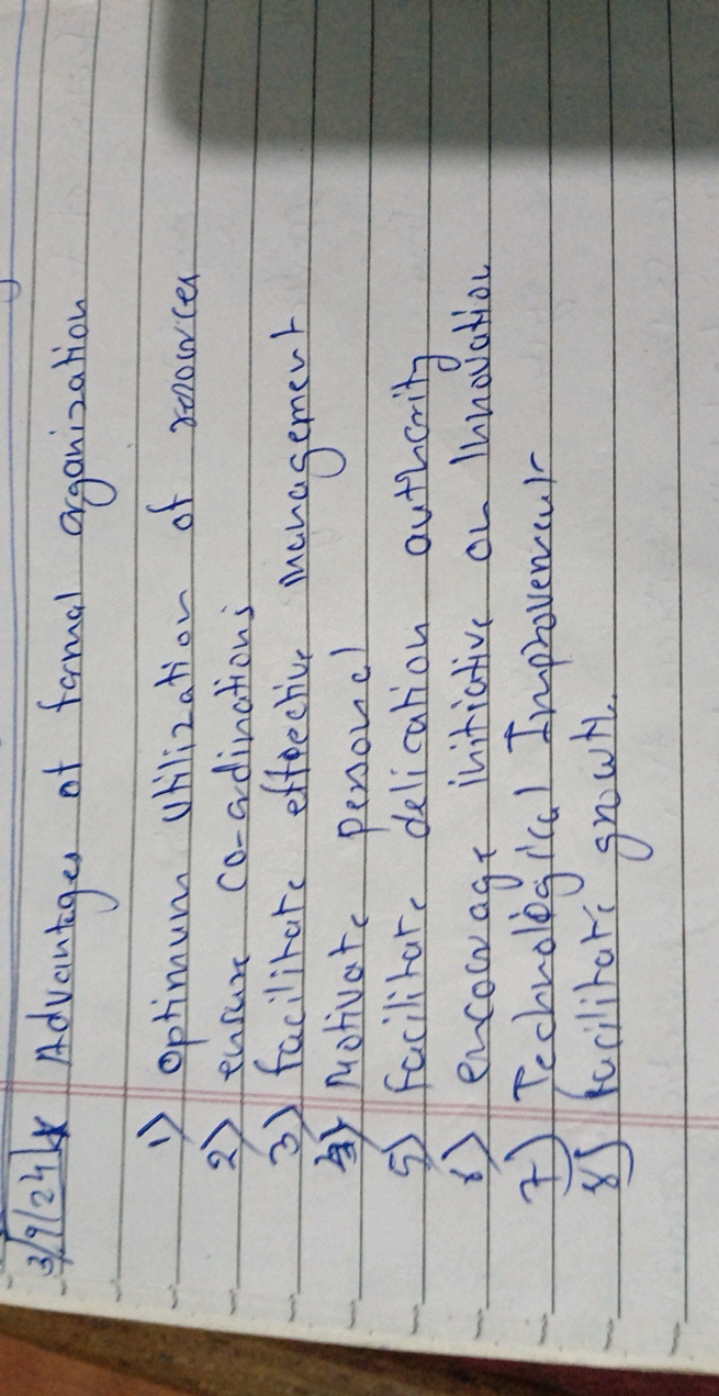 3/9/24 Advantages of formal organization
1) optimum utilization of resources
2) ensure co-ordinations
3) facilitate effective management
4) Motivate personal
5) facilitate delication authority
6) encourage initiative on Innovation
7) Technological Improvement
8) facilitate growth.